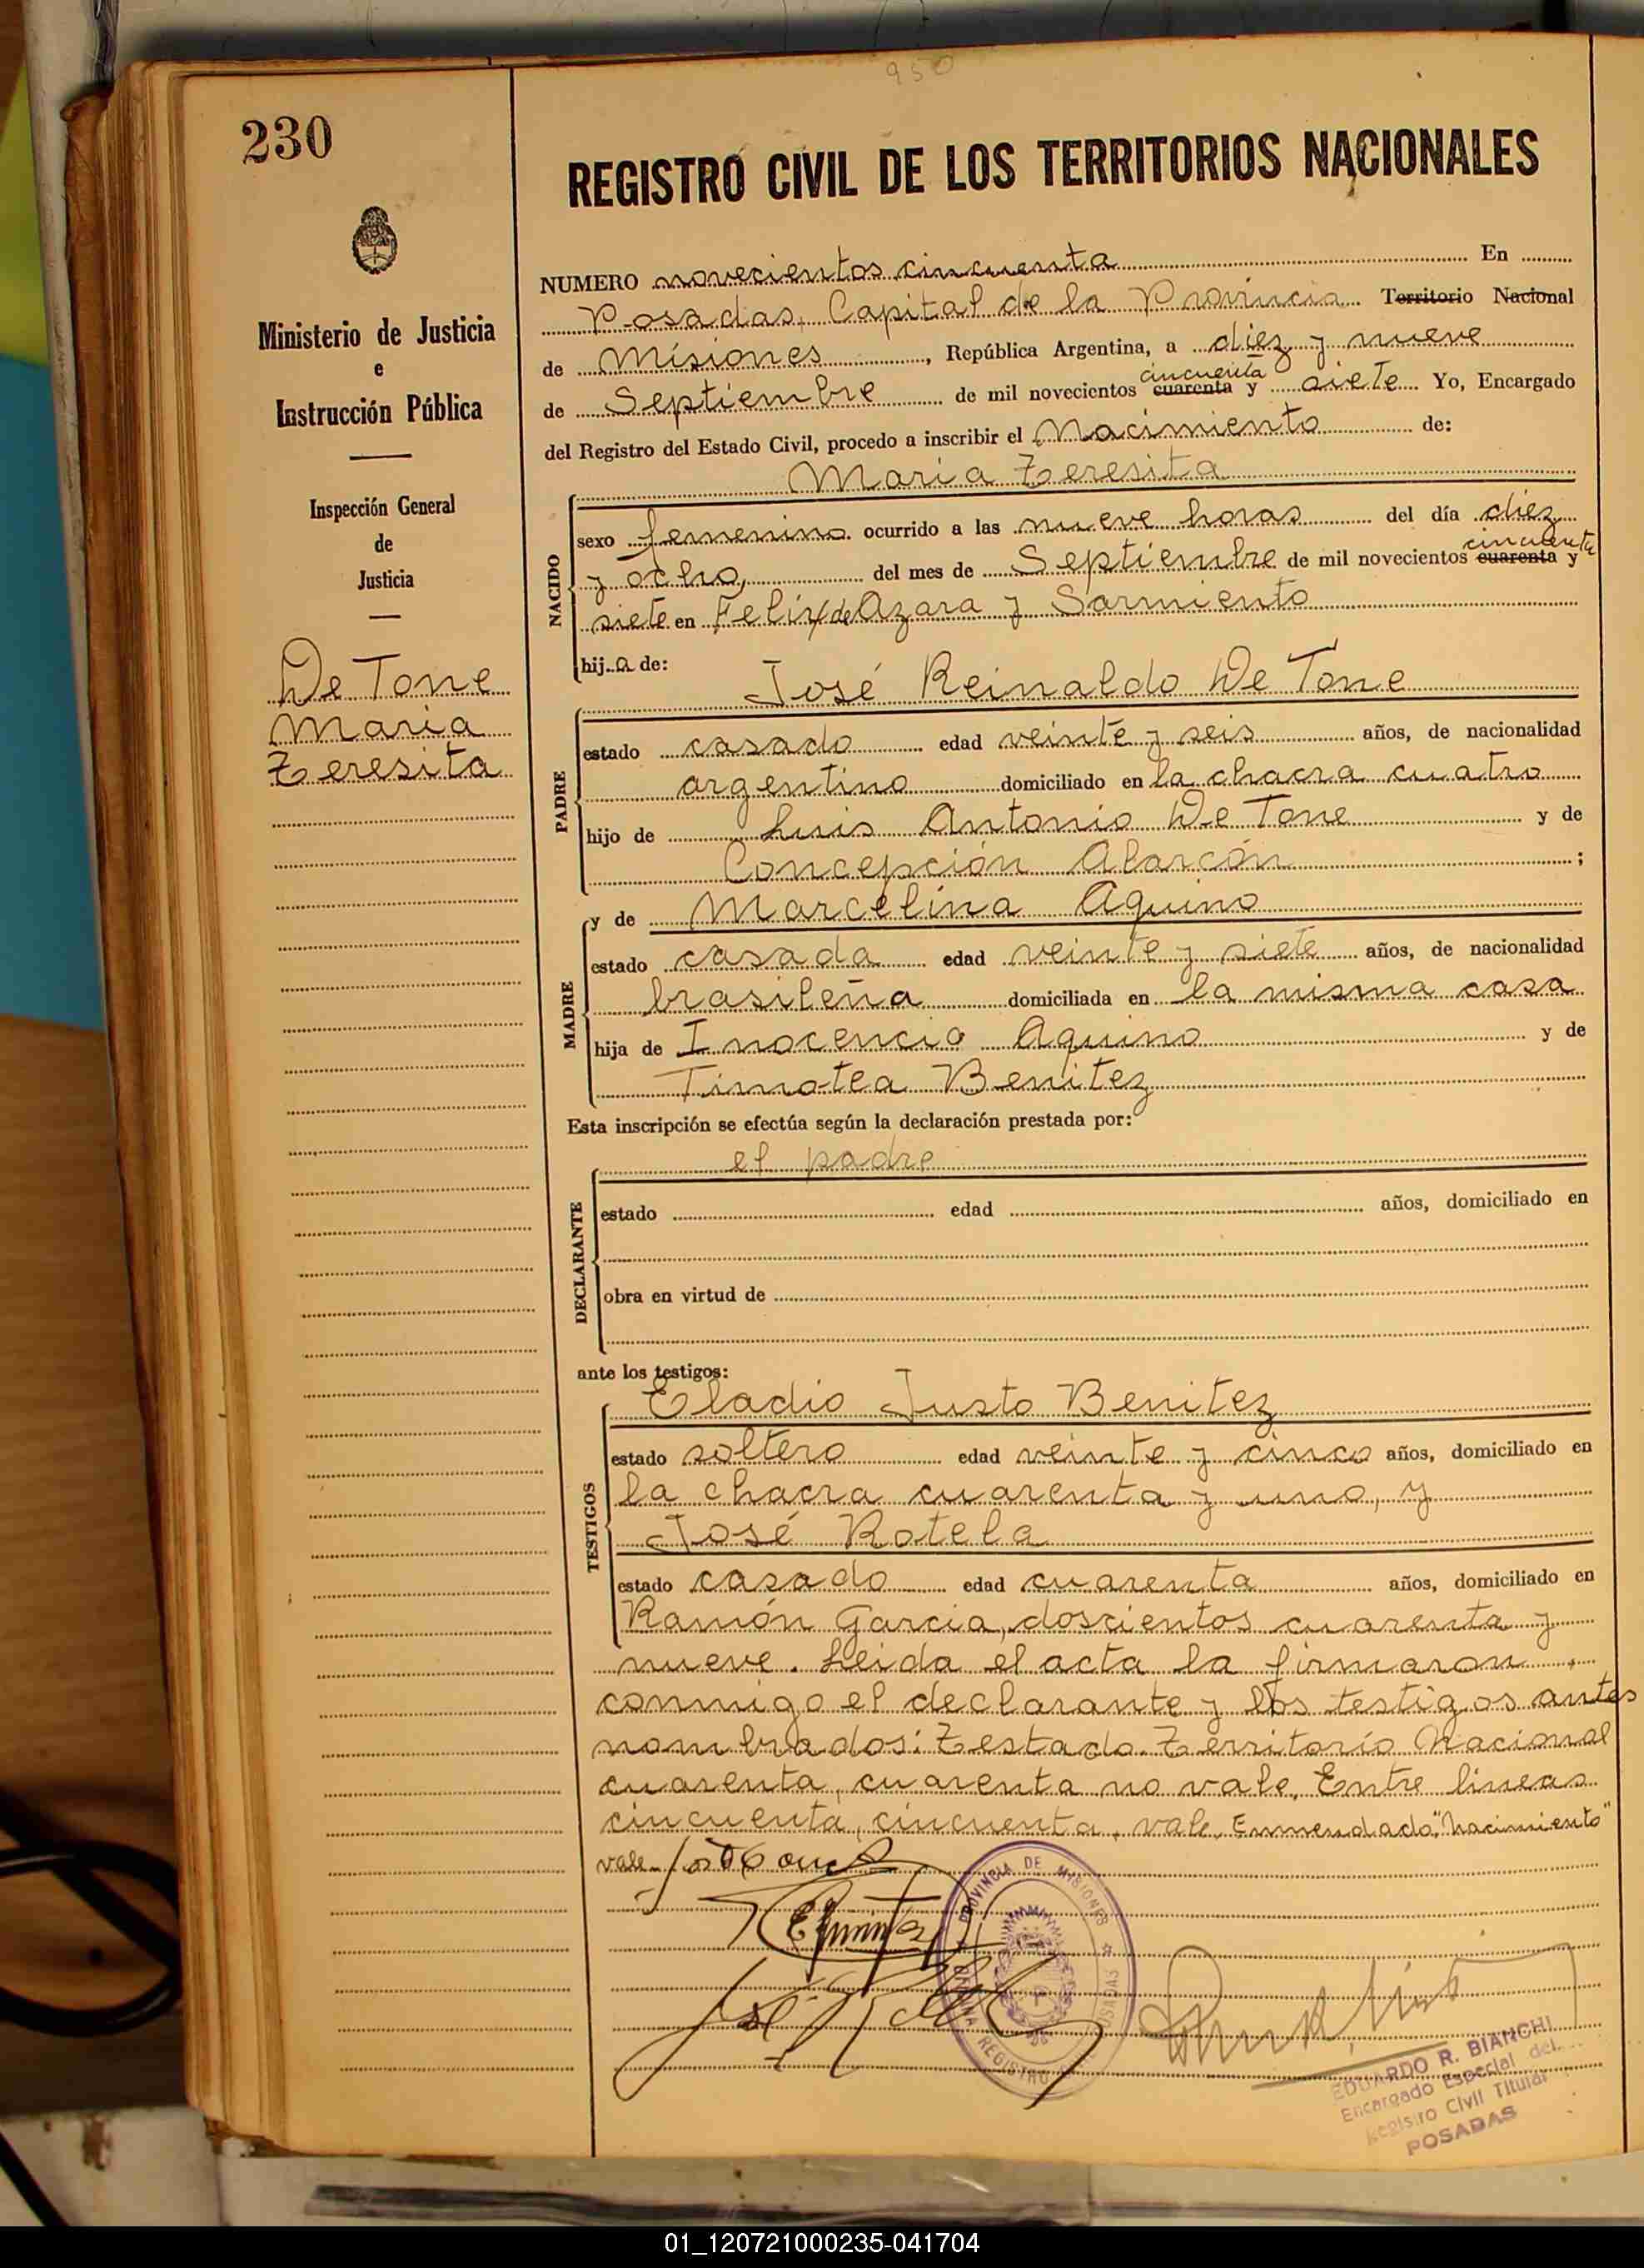 950
230
REGISTRO CIVIL DE LOS TERRITORIOS NACIONALES
NUMERO novecientos cincuenta En
Posadas, Capital de la Provincia Territorio Nacional
de Misiones, República Argentina, a diez y nueve
cincuenta
de Septiembre de mil novecientos cuarenta y siete Yo, Encargado
del Registro del Estado Civil, procedo a inscribir el Nacimiento de:
Maria Teresita
Ministerio de Justicia
e
Instrucción Pública
Inspección General
de
Justicia
De Tone
Maria
Teresita
NACIDO
sexo femenino ocurrido a las nueve horas del día diez
cincuenta
y ocho, del mes de Septiembre de mil novecientos cuarenta y
siete en Felix de Azara y Sarmiento
hij a de:
José Reinaldo De Tone
PADRE
estado casado edad veinte y seis años, de nacionalidad
argentino domiciliado en la chacra cuatro
hijo de Luis Antonio De Tone y de
Concepción Alarcón ;
MADRE
y de Marcelina Aquino
estado casada edad veinte y siete años, de nacionalidad
brasileña domiciliada en la misma casa
hija de Inocencio Aquino y de
Timotea Benitez
Esta inscripción se efectúa según la declaración prestada por:
el padre
DECLARANTE
estado edad años, domiciliado en
obra en virtud de
ante los testigos:
Eladio Justo Benitez
TESTIGOS
estado soltero edad veinte y cinco años, domiciliado en
la chacra cuarenta y uno, y
José Rotela
estado casado edad cuarenta años, domiciliado en
Ramón Garcia, doscientos cuarenta y
nueve. Leida el acta la firmaron
conmigo el declarante y los testigos antes
nombrados: Testado. Territorio Nacional
cuarenta, cuarenta no vale. Entre lineas
cincuenta, cincuenta, vale. Enmendado: "Nacimiento"
vale.
PROVINCIA DE MISIONES
POSADAS
EDUARDO R. BIANCHI
Encargado Especial del
Registro Civil Titular
POSADAS
01_120721000235-041704